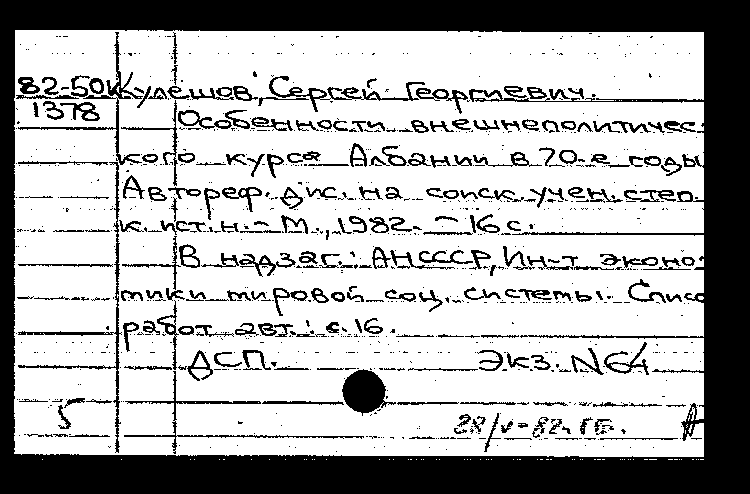 82-50к Кулешов, Сергей Георгиевич.
1378 Особенности внешнеполитичес-
кого курса Албании в 70-е годы
Автореф. дис. на соиск. учен. степ.
к. ист. н. - М., 1982. - 16 с.
В надзаг.: АН СССР, Ин-т эконо-
мики мировой соц. системы. Списо
работ авт.: с. 16.
ДСП. Экз. N64
5 28/V-82г.